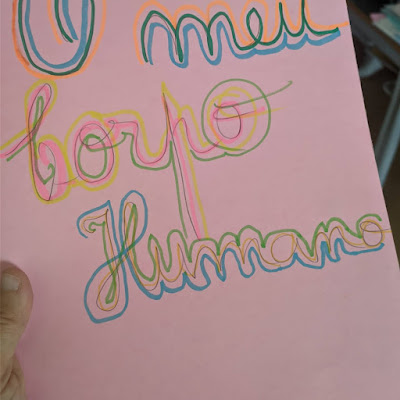 O meu
Corpo
Humano